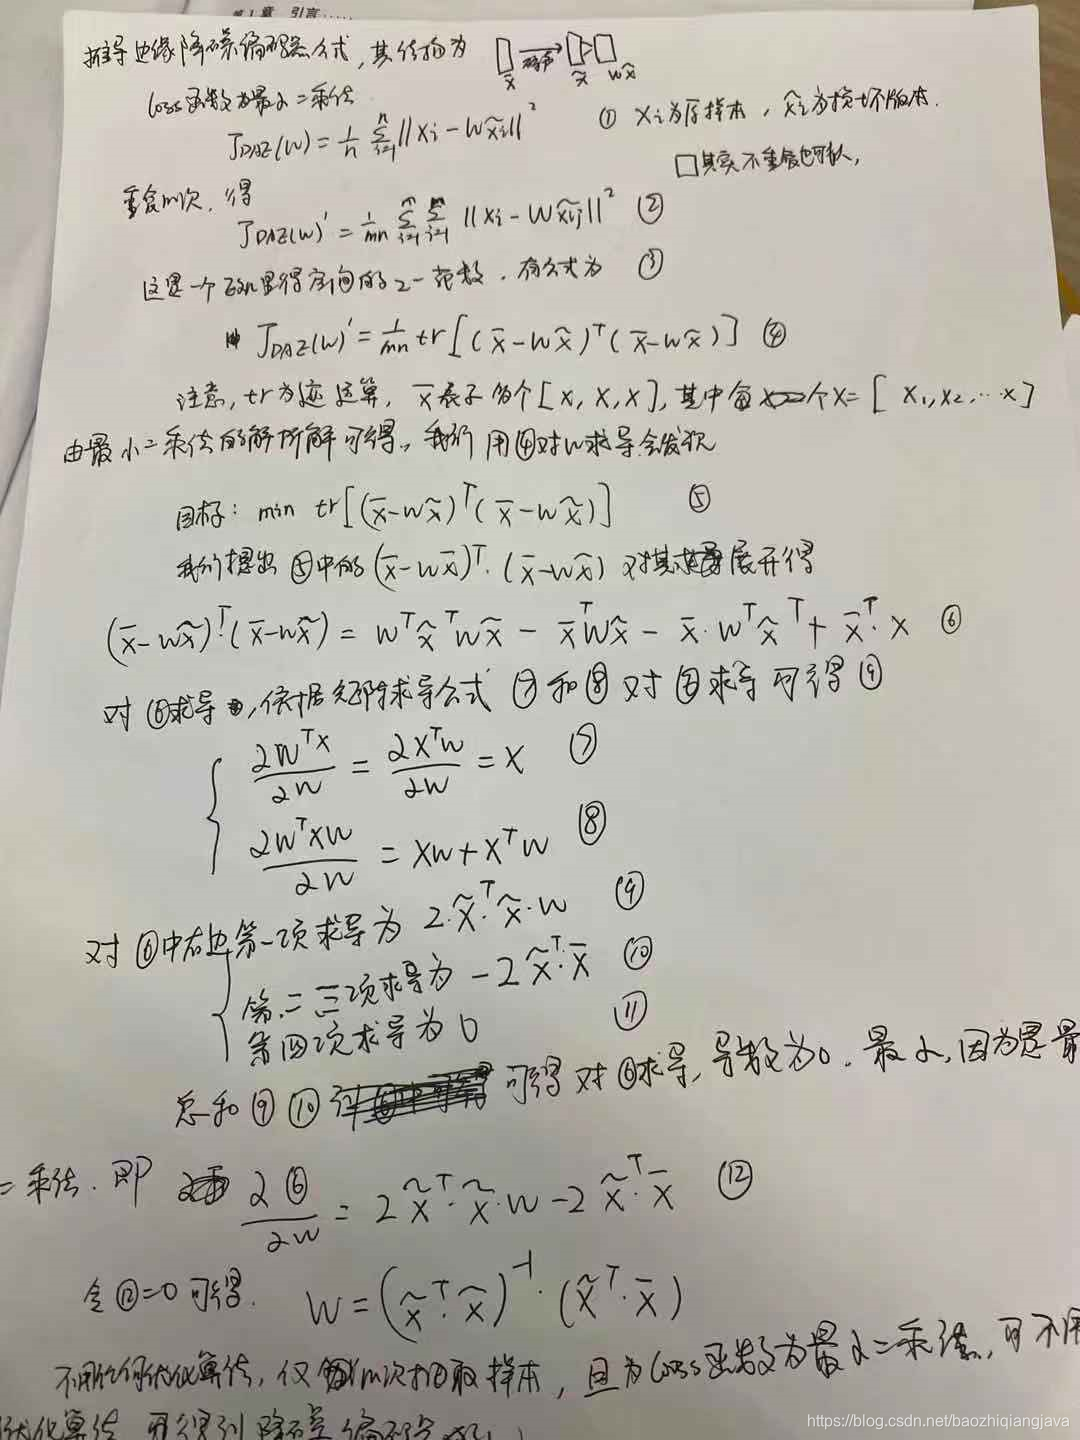 第1章 引言......
推导边缘降噪编码器公式,其结构为 x̄ 加噪 x̃ wx̃
loss函数为最小二乘法
J_DAZ(W) = 1/n Σ_{i=1}^{n} ||xi - Wx̃i||² ① xi为原样本,x̃i为损坏版本.
重复m次,得 □其实不重复也可以,
J_DAZ(W)' = 1/mn Σ Σ ||xi - Wx̃ij||² ②
这是一个 空间的2-范数,有公式为 ③
J_DAZ(W)' = 1/mn tr[(x̄-Wx̃)ᵀ(x̄-Wx̃)] ④
注意,tr为迹运算,x̄表示 个[x,x,x],其中每 个X=[x₁,x₂,...x]
由最小二乘法的解析解可得,我们用④对w求导会发现
目标: min tr[(x̄-wx̃)ᵀ(x̄-wx̃)] ⑤
我们提出⑤中的(x̄-wx̄)ᵀ·(x̄-wx̃)对其 展开得
(x̄-wx̃)ᵀ(x̄-wx̃) = wᵀx̃ᵀwx̃ - x̄ᵀwx̃ - x̄·wᵀx̃ᵀ + x̄ᵀ·x ⑥
对⑥求导,依据矩阵求导公式⑦和⑧对 求导可得⑨
∂wᵀx/∂w = ∂xᵀw/∂w = x ⑦
∂wᵀxw/∂w = xw+xᵀw ⑧
对⑥中右边第一项求导为 2·x̃ᵀ·x̃·w ⑨
第二三项求导为 -2x̃ᵀ·x̄ ⑩
第四项求导为0 ⑪
总和⑨⑩ 可得对⑥求导,导数为0.最小,因为是最
二乘法.即 ∂⑥/∂w = 2x̃ᵀ·x̃·w-2x̃ᵀ·x̄ ⑫
令⑫=0可得. W=(x̃ᵀ·x̃)⁻¹·(x̃ᵀ·x̄)
不用任何优化算法,仅 m次抽取样本,且为loss函数为最小二乘法,可不用
优化算法 可得到降噪编码
https://blog.csdn.net/baozhiqiangjava